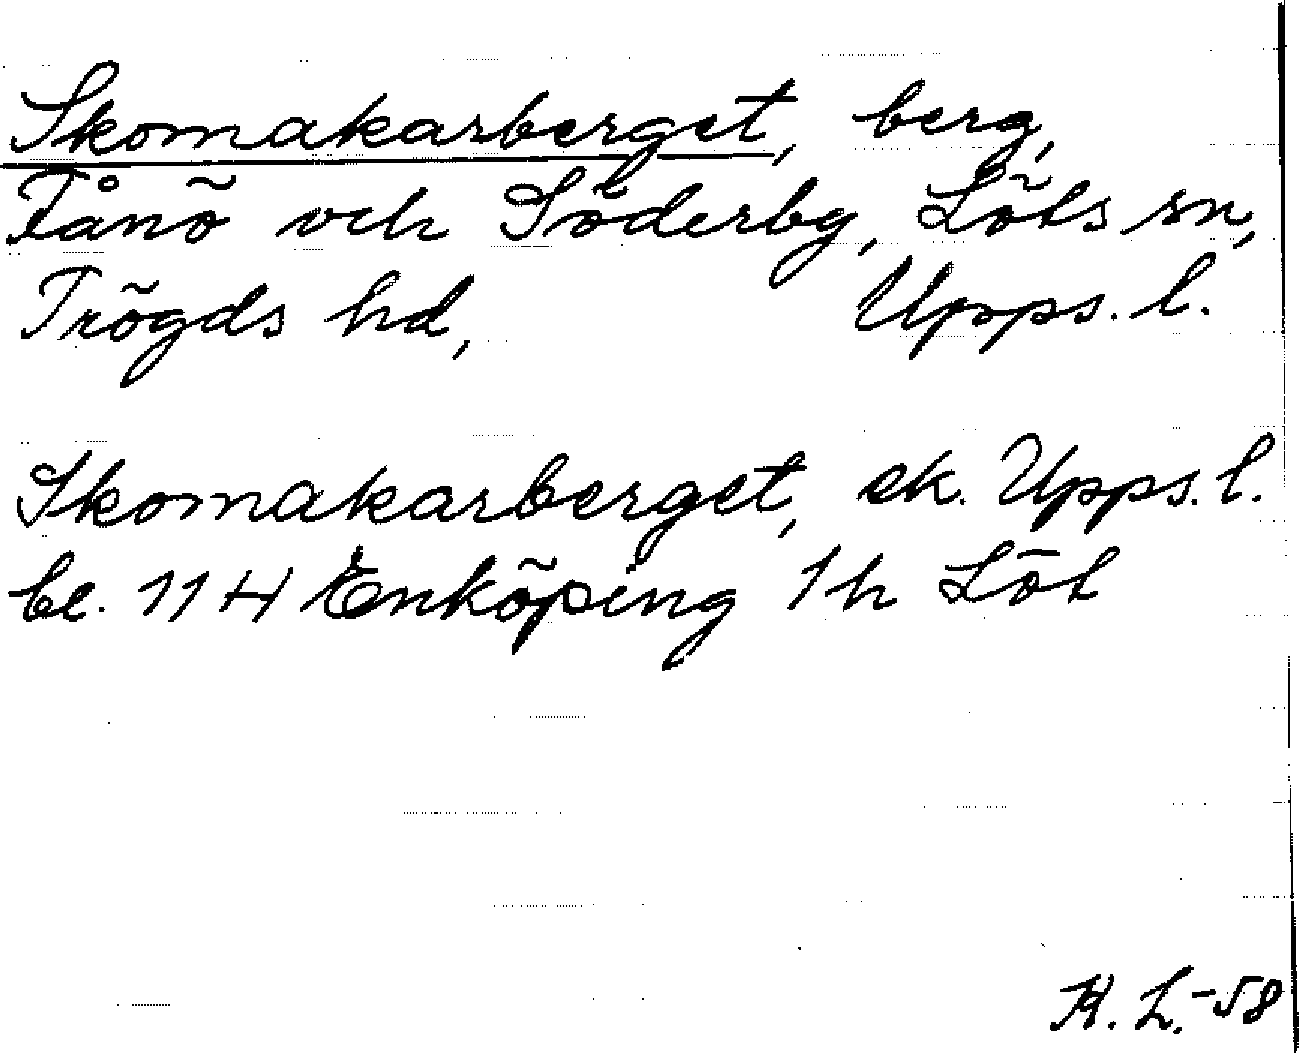 Skomakarberget, berg,
Fånö och Söderby, Löts sn,
Trögds hd, Upps. l.
Skomakarberget, ek. Upps. l.
bl. 11 H Enköping 1 h Löt
H. L. -58